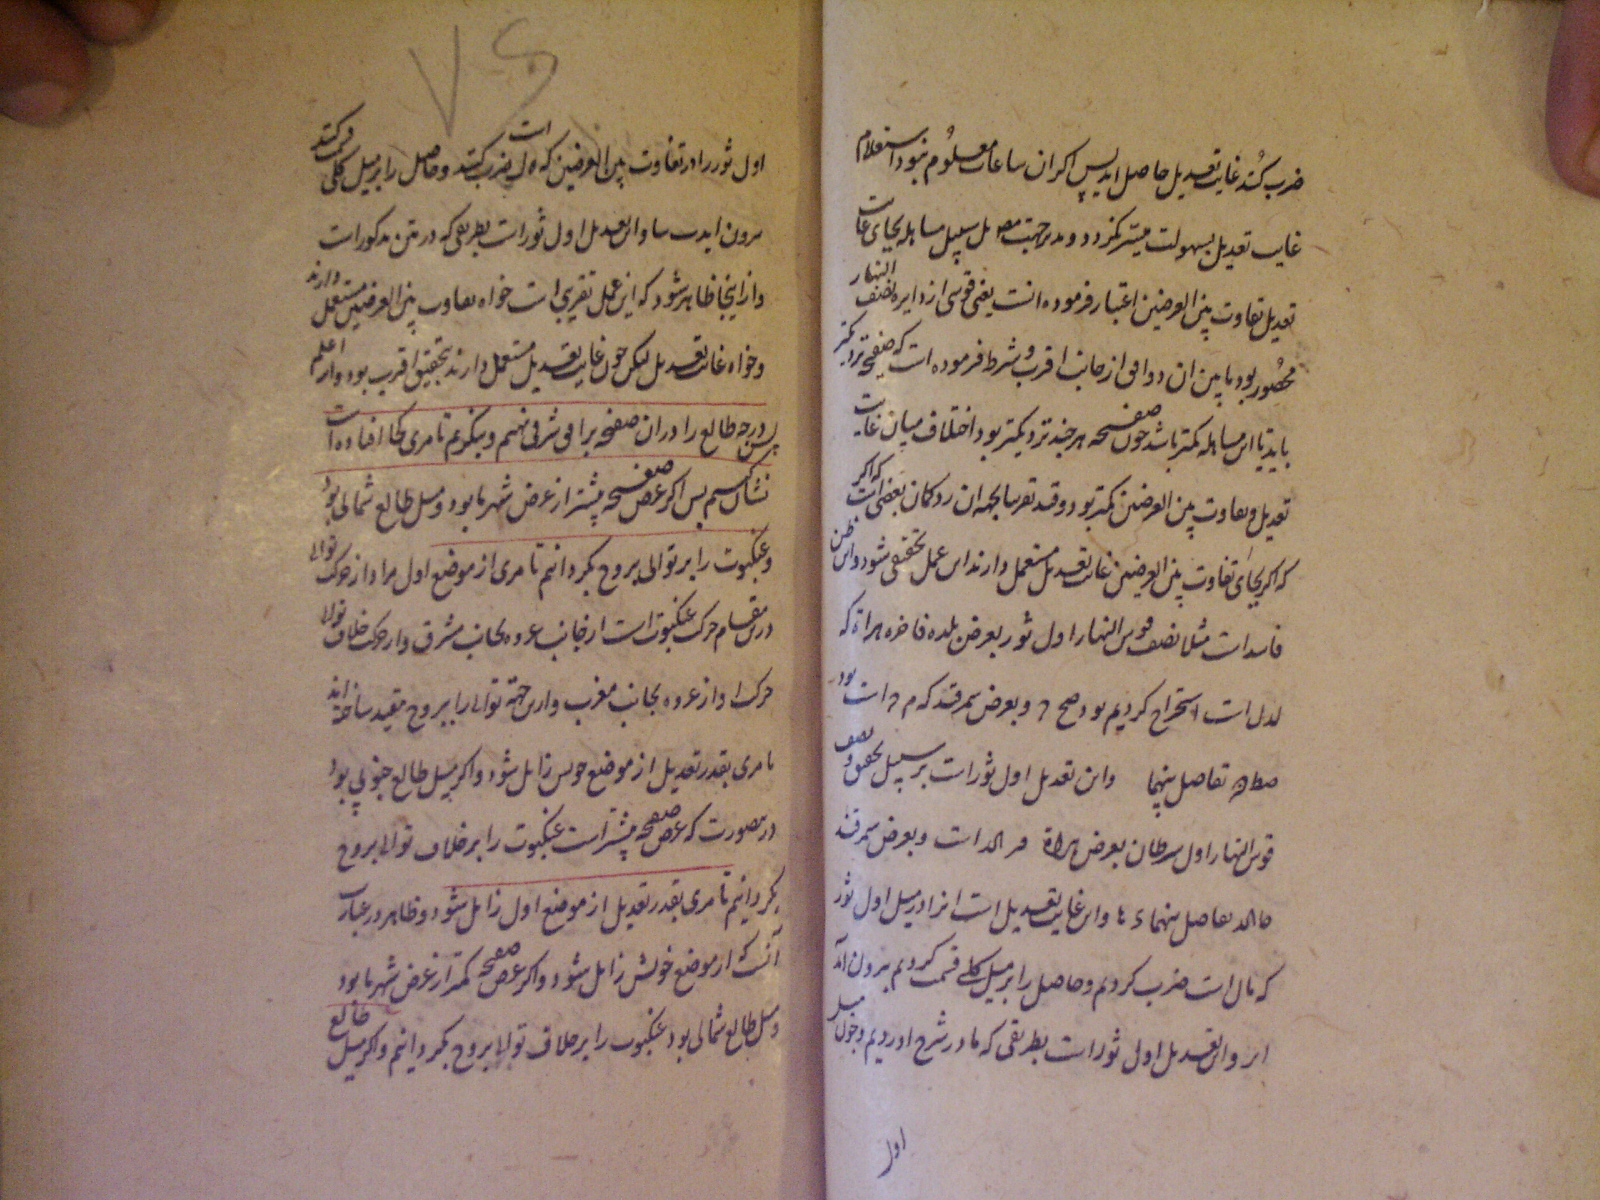 ضرب کنند غایت تعدیل حاصل اید پس اکر ان ساعات معلوم نبود استعلام
غایت تعدیل بسهولت میسّر نکردد و بدین جهت بر سبیل مساهله بجای غایت
تعدیل تفاوت بین العرضین اعتبار فرموده است یعنی قوسی از دایره نصف النهار
محصور بود ما بین ان دو افق از جانب اقرب و شرط فرموده است که صفیحه نزدیکتر
باید تا این مساهله کمتر باشد چون صفیحه هر چند نزدیکتر بود اختلاف میان غایت
تعدیل و تفاوت بین العرضین کمتر بود و بعضی است که اکر
که اکر بجای تفاوت بین العرضین غایت تعدیل مستعمل دارند این عمل تحقیقی شود و این ظن
فاسد است مثلا نصف قوس النهار اول ثور بعرض بلده فاخره هراة که
لدل است استخراج کردیم بود صح و بعرض سمرقند که م است بود
تفاضل بینهما و این تعدیل اول ثور است بر سبیل تحقیق و نصف
قوس النهار اول سرطان بعرض هراة است و بعرض سمرقند
تفاضل بینهما و این غایت تعدیل است انرا در میل اول ثور
که است ضرب کردیم و حاصل را بر میل کلی قسمت کردیم بیرون آمد
و این تعدیل اول ثور است بطریقی که ما در شرح اوردیم و چون میل
اول
۷۶
اول ثور را در تفاوت بین العرضین که است ضرب کنند و حاصل را بر میل کلی قسمت کنند
بیرون اید و این تعدیل اول ثور است بطریقی که در متن مذکور است
و از اینجا ظاهر شود که این عمل تقریبی است خواه تفاوت بین العرضین مستعمل دارند
و خواه غایت تعدیل لیکن چون غایت تعدیل مستعمل دارند بتحقیق اقرب بود و الله اعلم
پس درجه طالع را در ان صفیحه بر افق شرقی نهیم و بنکریم تا مری کجا افتاده است
نشان کنیم پس اکر عرض صفیحه بیشتر از عرض شهر ما بود و میل طالع شمالی بود
عنکبوت را بر توالی بروج بکردانیم تا مری از موضع اول مراد از حرکت توالی
درین مقام حرکت عنکبوت است از جانب عروه بجانب مشرق و از حرکت خلاف توالی
حرکت او از عروه بجانب مغرب و ازین جهة توالی را ببروج مقید ساخته اند
تا مری بقدر تعدیل از موضع خویش زایل شود و اکر میل طالع جنوبی بود
درین صورت که عرض صفیحه بیشتر است عنکبوت را بر خلاف توالی بروج
بکردانیم تا مری بقدر تعدیل از موضع اول زایل شود و ظاهر در عبارت
آنست که از موضع خویش زایل شود و اکر عرض صفیحه کمتر از عرض شهر ما بود
و میل طالع شمالی بود عنکبوت را بر خلاف توالی بروج بکردانیم و اکر میل طالع